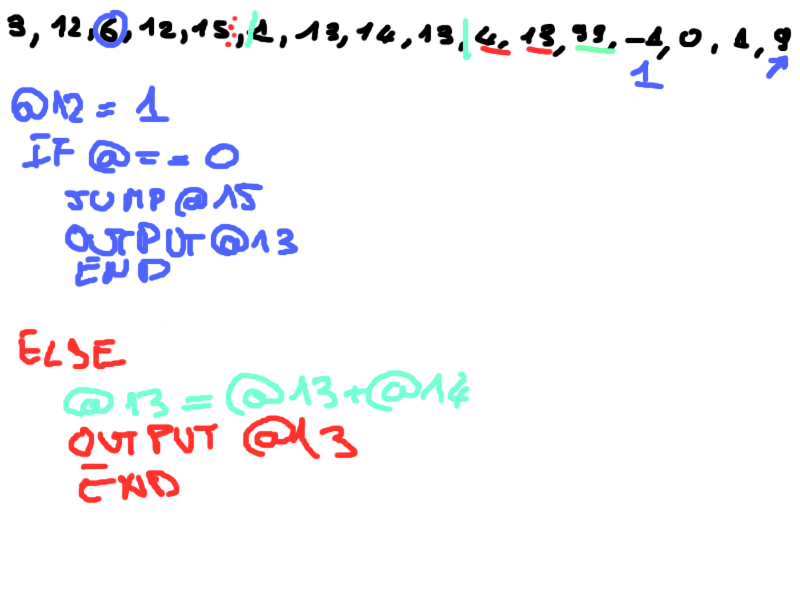 3, 12, 6, 12, 15, 1, 13, 14, 13, 4, 13, 99, -1, 0, 1, 9
1
@12 = 1
IF @ == 0
JUMP @15
OUTPUT @13
END
ELSE
@13 = @13+@14
OUTPUT @13
END